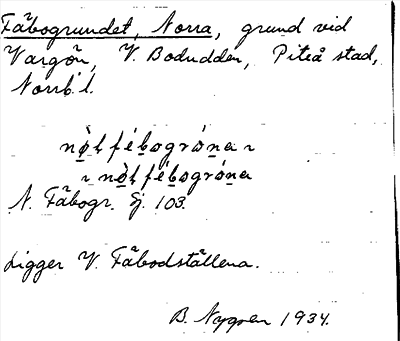 Fäbogrundet, Norra, grund vid
Vargön, V. Bodudden, Piteå stad,
Norrb. l.
nø̀l fébogróna ~
~ nø̀l fébogróna
N. Fäbogr. Ej. 103.
Ligger V. Fäbodställena.
B. Nygren 1934.